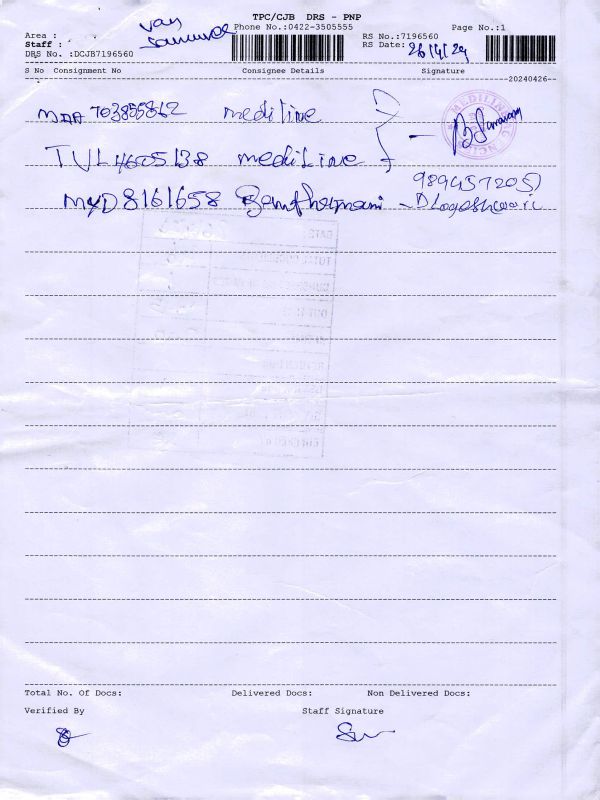 TPC/CJB DRS - PNP
Phone No.:0422-3505555 Page No.:1
Area : van
Staff :
RS No.:7196560
RS Date: 26/4/24
DRS No. :DCJB7196560
S No Consignment No Consignee Details Signature
20240426
MAA 703855862 mediline
TVL 4605138 mediline
9894572051
MYD 8161658 - D Logeshwari
Total No. Of Docs: Delivered Docs: Non Delivered Docs:
Verified By Staff Signature